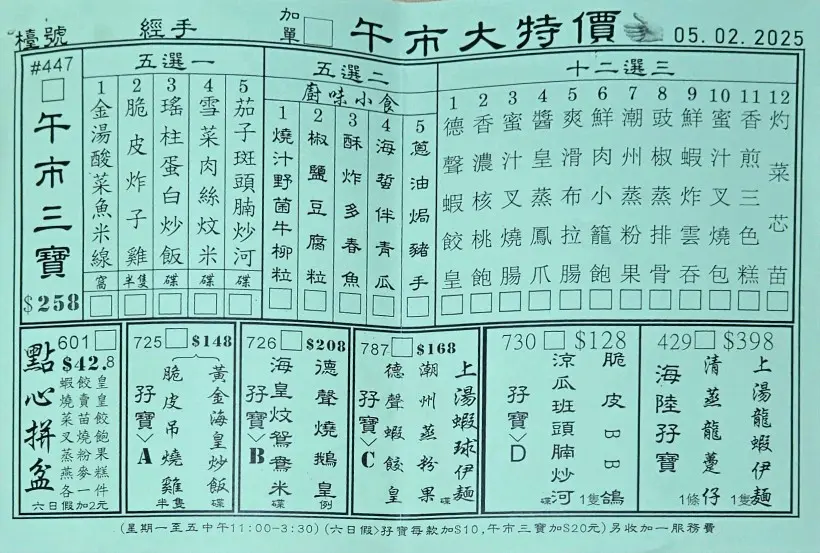 檯號
經手
加單
午市大特價
05.02.2025
#447
午市三寶
$258
五選一
1 金湯酸菜魚米線 窩
2 脆皮炸子雞 半隻
3 瑤柱蛋白炒飯 碟
4 雪菜肉絲炆米 碟
5 茄子斑頭腩炒河 碟
五選二
廚味小食
1 燒汁野菌牛柳粒
2 椒鹽豆腐粒
3 酥炸多春魚
4 海蜇伴青瓜
5 蔥油焗豬手
十二選三
1 德聲蝦餃皇
2 香濃核桃飽
3 蜜汁叉燒腸
4 醬皇蒸鳳爪
5 爽滑布拉腸
6 鮮肉小籠飽
7 潮州蒸粉果
8 豉椒蒸排骨
9 鮮蝦炸雲吞
10 蜜汁叉燒包
11 香煎三色糕
12 灼菜芯苗
點心拼盆
601
$42.8
蝦餃皇
燒賣皇
菜苗餃
叉燒飽
蒸粉果
燕麥糕
各一件
六日假加2元
725 $148
孖寶>A
黃金海皇炒飯 碟
脆皮吊燒雞 半隻
726 $208
孖寶>B
德聲燒鵝皇 例
海皇炆鴛鴦米 碟
787 $168
孖寶>C
上湯蝦球伊麵 碟
潮州蒸粉果
德聲蝦餃皇
730 $128
孖寶>D
脆皮BB鴿 1隻
涼瓜班頭腩炒河 碟
429 $398
海陸孖寶
上湯龍蝦伊麵 1隻
清蒸龍躉仔 1條
(星期一至五中午11:00-3:30)(六日假>孖寶每款加$10,午市三寶加$20元)另收加一服務費